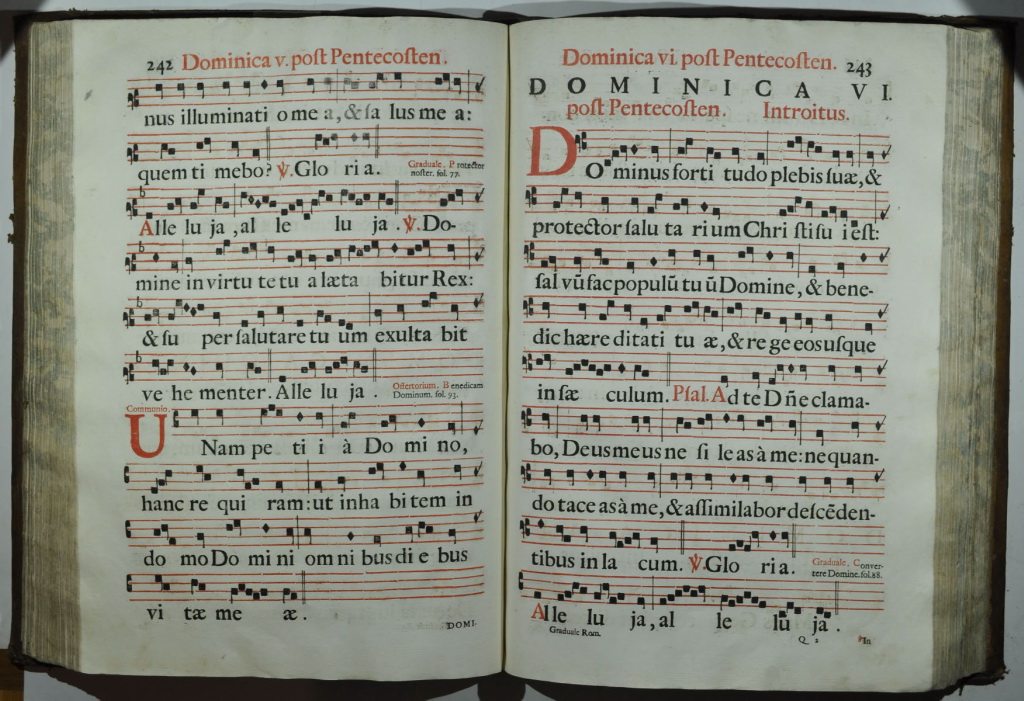 242 Dominica v. poſt Pentecoſten.
nus illuminati o me a, & ſa lus me a:
quem ti mebo? ℣. Glo ri a. Graduale. Protector
noſter. fol. 77.
Alle lu ja, al le lu ja. ℣. Do-
mine in virtu te tu a læta bitur Rex:
& ſu per ſalutare tu um exulta bit
ve he menter. Alle lu ja. Offertorium. Benedicam
Dominum. fol. 93.
Communio.
UNam pe ti i à Do mi no,
hanc re qui ram: ut inha bi tem in
do mo Do mi ni om ni bus di e bus
vi tæ me æ.
DOMI-
Dominica vi. poſt Pentecoſten. 243
DOMINICA VI.
poſt Pentecoſten. Introitus.
DOminus forti tudo plebis ſuæ, &
protector ſalu ta ri um Chri ſti ſu i eſt:
ſal vũ fac populũ tu ũ Domine, & bene-
dic hære ditati tu æ, & re ge eos uſque
in ſæ culum. Pſal. Ad te Dñe clama-
bo, Deus meus ne ſi le as à me: ne quan-
do tace as à me, & aſſimilabor deſcẽden-
tibus in la cum. ℣. Glo ri a. Graduale. Conver-
tere Domine. fol. 88.
Alle lu ja, al le lu ja.
Graduale Rom. Q 2 In